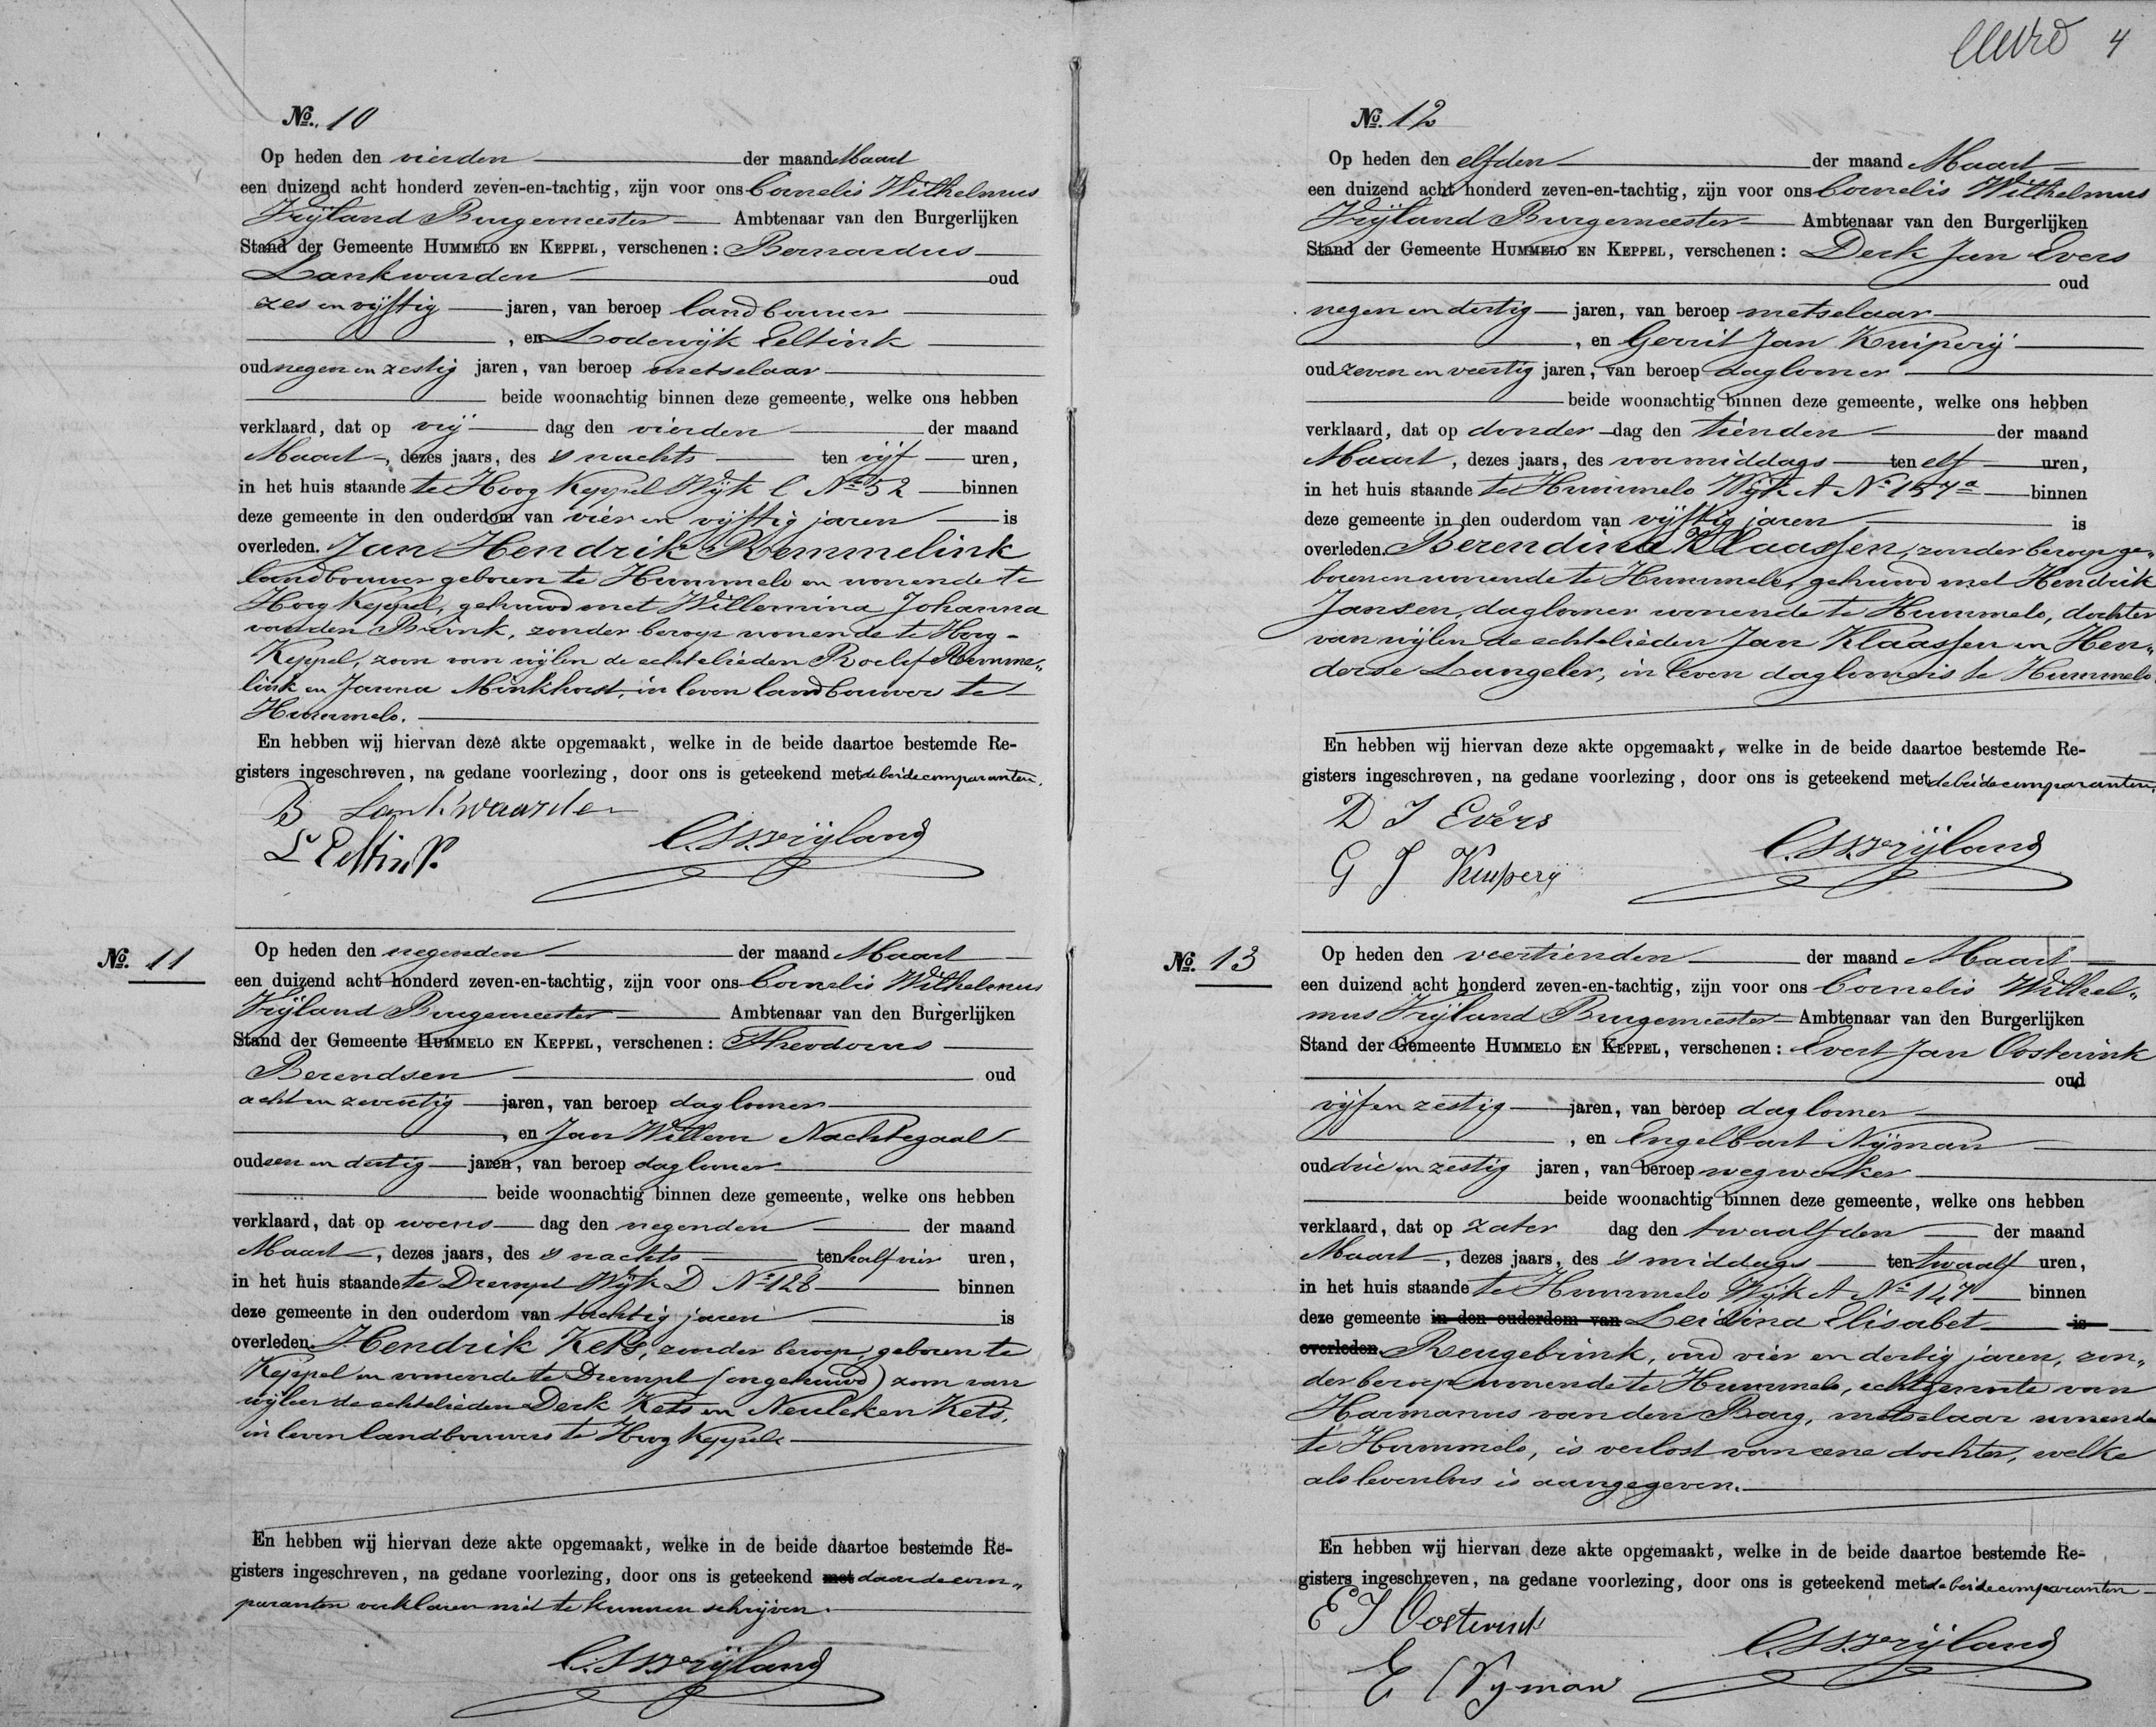 No. 10
Op heden den vierden der maand Maart
een duizend acht honderd zeven-en-tachtig, zijn voor ons Cornelis Wilhelmus
Vrijland Burgemeester Ambtenaar van den Burgerlijken
Stand der Gemeente HUMMELO EN KEPPEL, verschenen: Bernardus
Lankwarden oud
zes en vijftig jaren, van beroep landbouwer
, en Lodewijk Eeltink
oud negen en zestig jaren, van beroep metselaar
beide woonachtig binnen deze gemeente, welke ons hebben
verklaard, dat op vrij dag den vierden der maand
Maart, dezes jaars, des 's nachts ten vijf uren,
in het huis staande te Hoog Keppel Wijk C No 52 binnen
deze gemeente in den ouderdom van vier en vijftig jaren is
overleden. Jan Hendrik Remmelink
landbouwer geboren te Hummelo en wonende te
Hoog Keppel, gehuwd met Willemina Johanna
van den Brink, zonder beroep wonende te Hoog-
Keppel, zoon van wijlen de echtelieden Roelof Remme„
link en Janna Minkhorst, in leven landbouwer te
Hummelo.
En hebben wij hiervan deze akte opgemaakt, welke in de beide daartoe bestemde Re-
gisters ingeschreven, na gedane voorlezing, door ons is geteekend met de beide comparanten.
B Lankwaarden
L Eeltink
C.W. Vrijland
No. 11
Op heden den negenden der maand Maart
een duizend acht honderd zeven-en-tachtig, zijn voor ons Cornelis Wilhelmus
Vrijland Burgemeester Ambtenaar van den Burgerlijken
Stand der Gemeente HUMMELO EN KEPPEL, verschenen: Theodorus
Berendsen oud
acht en zeventig jaren, van beroep daglooner
, en Jan Willem Nachtegaal
oud een en dertig jaren, van beroep daglooner
beide woonachtig binnen deze gemeente, welke ons hebben
verklaard, dat op woens dag den negenden der maand
Maart, dezes jaars, des 's nachts ten half vier uren,
in het huis staande te Drempt Wijk D No 128 binnen
deze gemeente in den ouderdom van tachtig jaren is
overleden. Hendrik Kets, zonder beroep, geboren te
Keppel en wonende te Drempt (ongehuwd) zoon van
wijlen de echtelieden Derk Kets en Neuleken Kets,
in leven landbouwers te Hoog Keppel.
En hebben wij hiervan deze akte opgemaakt, welke in de beide daartoe bestemde Re-
gisters ingeschreven, na gedane voorlezing, door ons is geteekend met daar de com„
paranten verklaren niet te kunnen schrijven.
C.W. Vrijland
4
No. 12
Op heden den elfden der maand Maart
een duizend acht honderd zeven-en-tachtig, zijn voor ons Cornelis Wilhelmus
Vrijland Burgemeester Ambtenaar van den Burgerlijken
Stand der Gemeente HUMMELO EN KEPPEL, verschenen: Derk Jan Evers
oud
negen en dertig jaren, van beroep metselaar
, en Gerrit Jan Kuiperij
oud zeven en veertig jaren, van beroep daglooner
beide woonachtig binnen deze gemeente, welke ons hebben
verklaard, dat op donder dag den tienden der maand
Maart, dezes jaars, des voormiddags ten elf uren,
in het huis staande te Hummelo Wijk A No 157a binnen
deze gemeente in den ouderdom van vijftig jaren is
overleden. Berendina Klaassen, zonder beroep ge„
boren en wonende te Hummelo, gehuwd met Hendrik
Jansen, daglooner wonende te Hummelo, dochter
van wijlen de echtelieden Jan Klaassen en Hen„
derse Langeler, in leven daglooners te Hummelo.
En hebben wij hiervan deze akte opgemaakt, welke in de beide daartoe bestemde Re-
gisters ingeschreven, na gedane voorlezing, door ons is geteekend met de beide comparanten.
D J Evers
G J Kuiperij
C.W. Vrijland
No. 13
Op heden den veertienden der maand Maart
een duizend acht honderd zeven-en-tachtig, zijn voor ons Cornelis Wilhel„
mus Vrijland Burgemeester Ambtenaar van den Burgerlijken
Stand der Gemeente HUMMELO EN KEPPEL, verschenen: Evert Jan Oosterink
oud
vijf en zestig jaren, van beroep daglooner
, en Engelbart Nijman
oud drie en zestig jaren, van beroep wegwerker
beide woonachtig binnen deze gemeente, welke ons hebben
verklaard, dat op zater dag den twaalfden der maand
Maart, dezes jaars, des 's middags ten twaalf uren,
in het huis staande te Hummelo Wijk A No 147 binnen
deze gemeente in den ouderdom van Leidina Elisabet is
overleden Reugebrink, oud vier en dertig jaren, zon„
der beroep wonende te Hummelo, echtgenoote van
Harmanus van den Barg, metselaar wonende
te Hummelo, is verlost van eene dochter, welke
als levenloos is aangegeven.
En hebben wij hiervan deze akte opgemaakt, welke in de beide daartoe bestemde Re-
gisters ingeschreven, na gedane voorlezing, door ons is geteekend met de beide comparanten
E J Oosterink
E Nijman
C.W. Vrijland